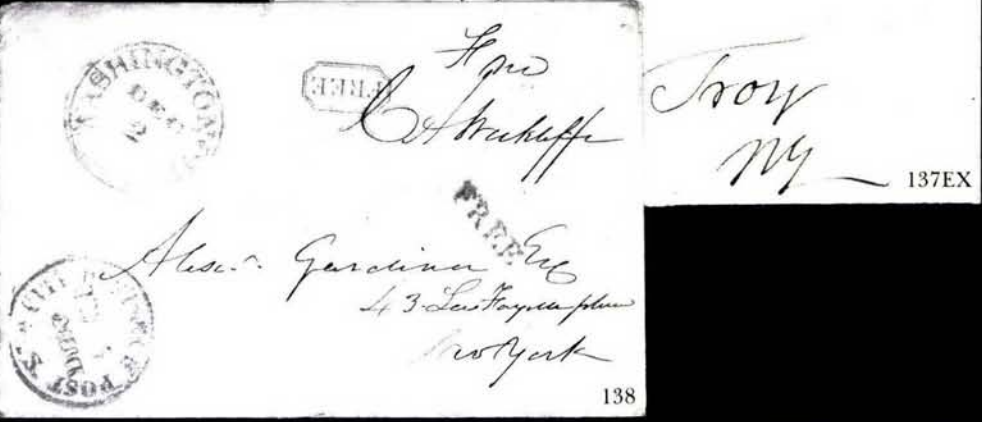 WASHINGTON
DEC
2
FREE
Free
C A Wickliffe
FREE
Alexr. Gardiner Esq
43 La Fayette place
New York
CITY DESPATCH POST
138
Troy
NY
137EX